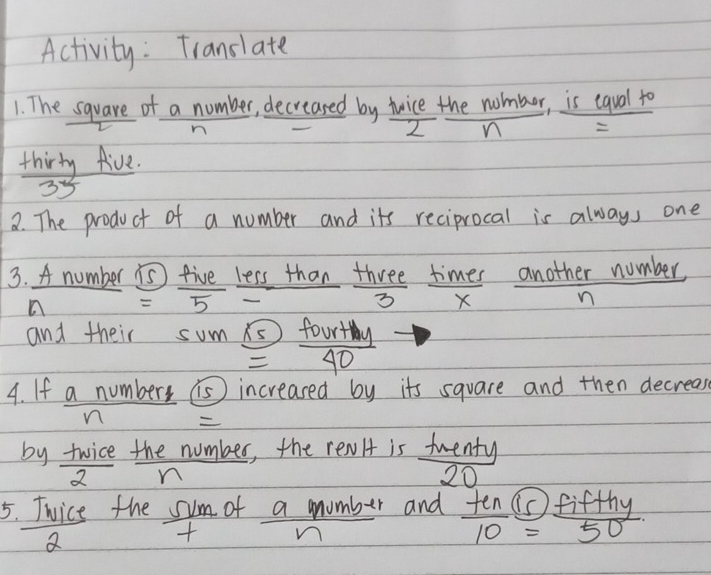 Activity: Translate
1. The square of a number, decreased by twice the number, is equal to
2 n - 2 n =
thirty five.
35
2. The product of a number and its reciprocal is always one
3. A number is five less than three times another number
n = 5 - 3 x n
and their sum is fourthy →
= 40
4. If a number is increased by its square and then decreas
n =
by twice the number, the result is twenty
2 n 20
5. Twice the sum of a number and ten is fifthy.
2 + n 10 = 50